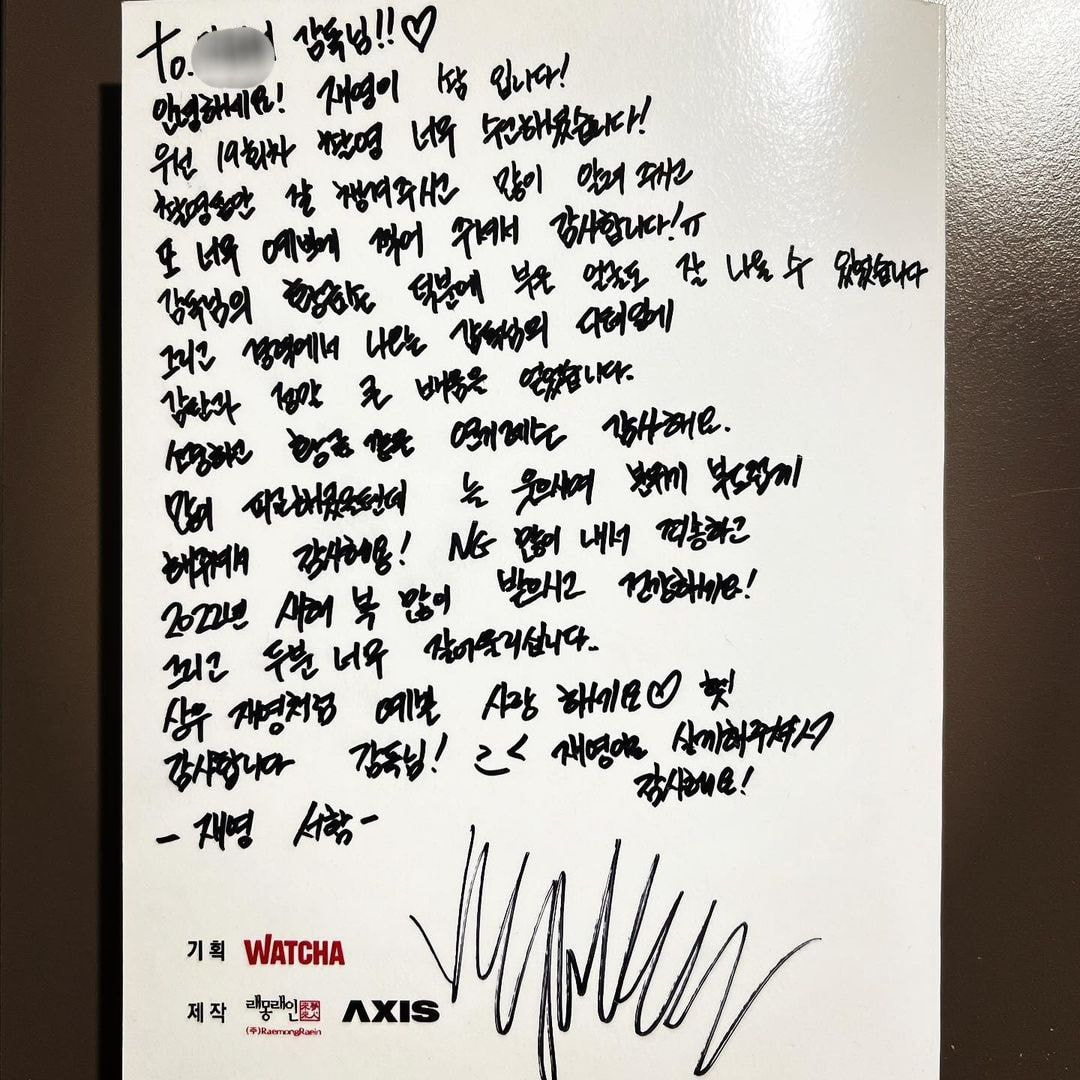 To. 감독님!!♡
안녕하세요! 재영이 삭 입니다!
우선 19회차 촬영 너무 수고하셨습니다!
촬영동안 잘 챙겨주시고 많이 알려 주시고
또 너무 예쁘게 찍어 주셔서 감사합니다!ㅠ
감독님의 황금손 덕분에 부은 얼굴도 잘 나올 수 있었습니다
그리고 경력에서 나오는 감독님의 디테일에
감탄과 정말 큰 배움을 얻었습니다.
소중하고 황금 같은 연기레슨 감사해요.
많이 피곤하셨을텐데 늘 웃으시며 분위기 부드럽게
해주셔서 감사해용! NG 많이 내서 죄송하고
2022년 새해 복 많이 받으시고 건강하세요!
그리고 두분 너무 잘어울리십니다..
상우 재영처럼 예쁜 사랑 하세요♡ 헷!
감사합니다 감독님! 재영으로 살게해주셔서
감사해요!
- 재영 서함 -
기획 WATCHA
제작 래몽래인 AXIS
(주)RaemongRaein